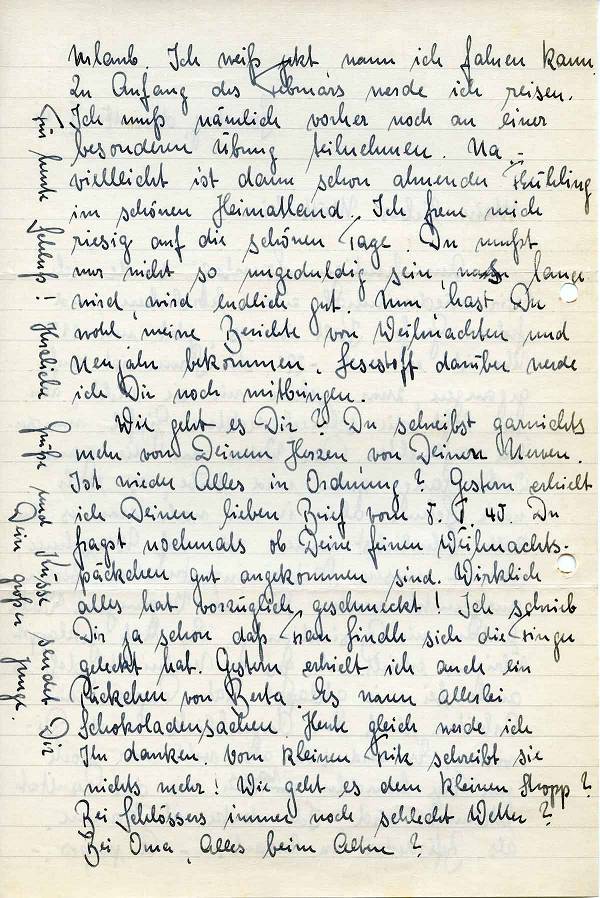 Urlaub. Ich weiß jetzt wann ich fahren kann.
Zu Anfang des Februars werde ich reisen.
Ich muß nämlich vorher noch an einer
besonderen Übung teilnehmen. Na.-
vielleicht ist dann schon ahnender Frühling
im schönen Heimatland. Ich freue mich
riesig auf die schönen Tage. Du mußt
nur nicht so ungeduldig sein, was lange
wird, wird endlich gut. Nun hast Du
wohl meine Berichte von Weihnachten und
Neujahr bekommen. Lesestoff darüber werde
ich Dir noch mitbringen.
Wie geht es Dir? Du schreibst garnichts
mehr von Deinem Herzen von Deinen Nerven.
Ist wieder Alles in Ordnung? Gestern erhielt
ich Deinen lieben Brief vom 5. 1. 45. Du
fragst nochmals ob Deine feinen Weihnachts-
päckchen gut angekommen sind. Wirklich
alles hat vorzüglich geschmeckt! Ich schrieb
Dir ja schon daß Frau Lindh sich die Finger
geleckt hat. Gestern erhielt ich auch ein
Päckchen von Berta. Es waren allerlei
Schokoladensachen. Heute gleich werde ich
Ihr danken. Vom kleinen Fritz schreibt sie
nichts mehr! Wie geht es dem kleinen Stropp?
Bei Schlössers immer noch schlecht Wetter?
Bei Oma, Alles beim Alten?
Für heute Schluß! Herzliche Grüße und Küsse sendet Dir
Dein großer Junge.